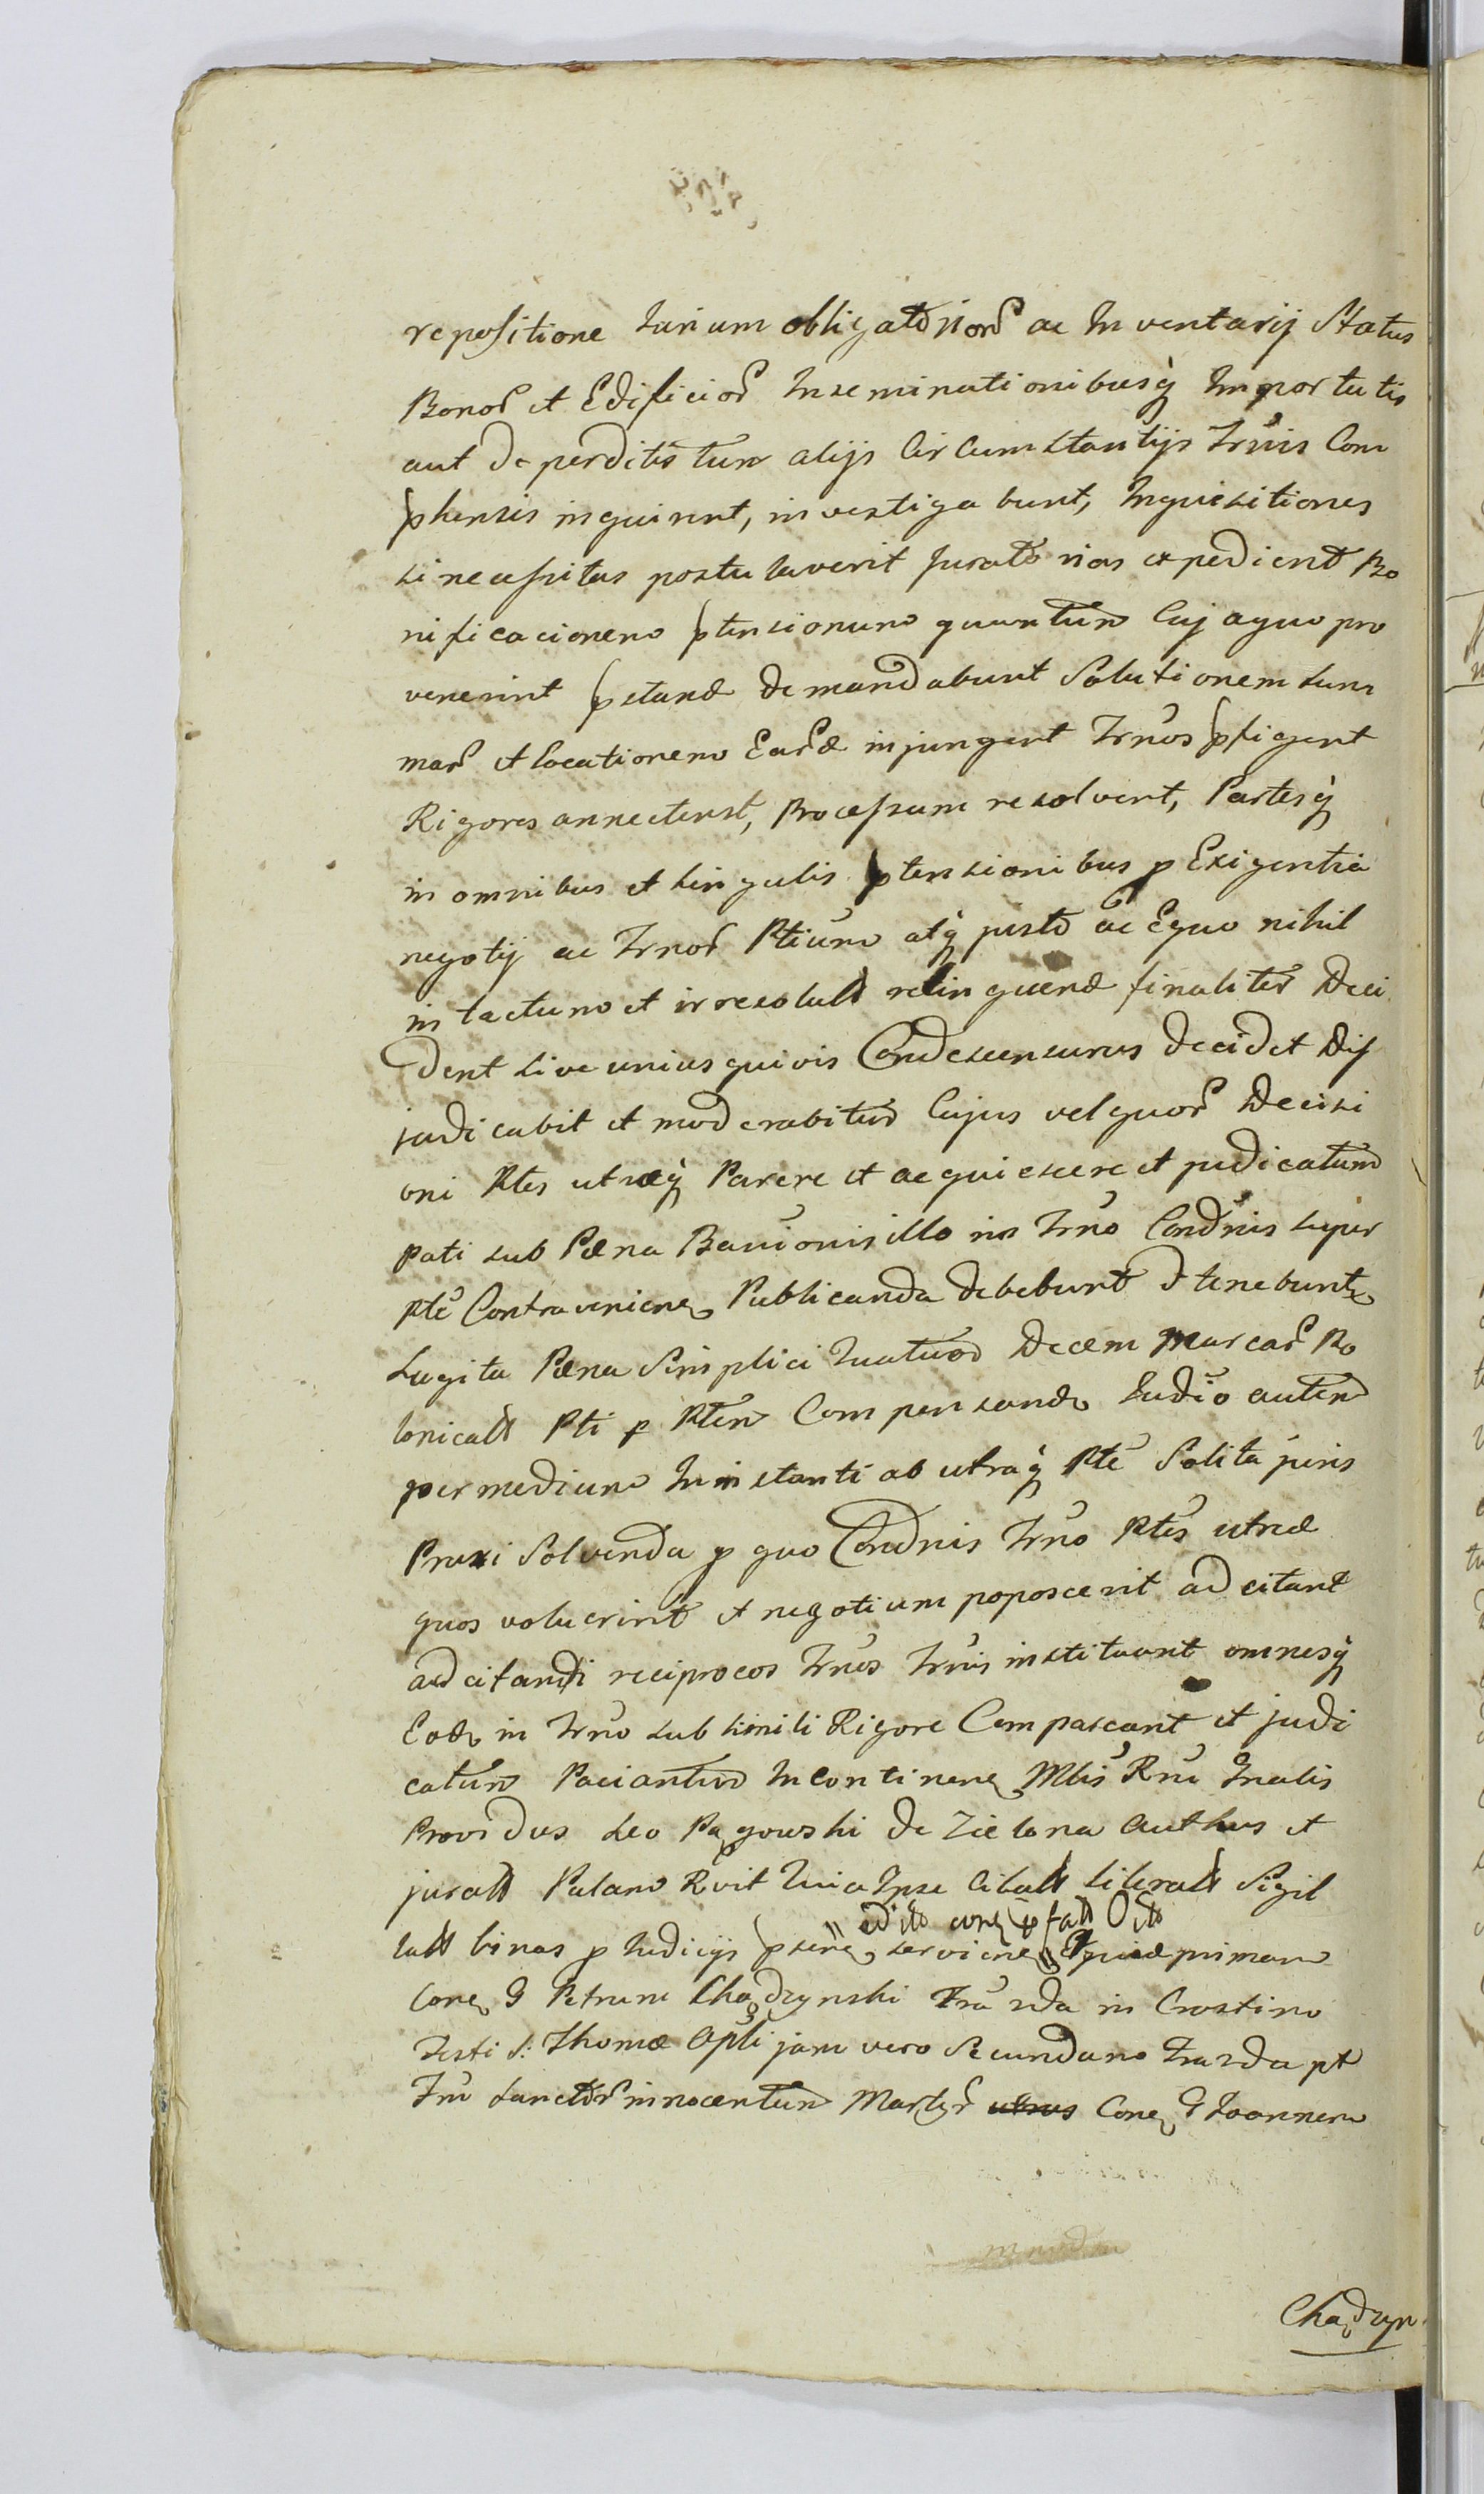 repositione Jurium obligatorior ac Inventarij Status
Bonor et Edificior Inseminationibusq Importutis
aut deperditis tum alijs Circumstantijs Trnis Com
phensis inquirent, investigabunt, Inquisitiones
si necessitas postulaverit Juratorias expedient Bo
nificacionem ptensionum quantum Cuj aquo pro
venerint pstand demandabunt Solutionem sum
mar et locationem Eard injungent Trnos pfigent
Rigores annectent, Processum resolvent, Partesq
in omnibus et singulis ptensionibus p Exigentia
negotij ac Trnor Ptium atq justo ac Equo nihil
intactum et irresolutt relinquend finaliter Deci
dent sive unius quivis Condescensurus decidet Dij
judicabit et moderabitur Cujus vel quor Decisi
oni Ptes utraeq Parere et acquiescere et judicatum
pati sub Poena Banionis illo in Trno Condnis super
Pte Contraveniene Publicanda debebunt et tenebunt
Lugita Poena Simplici Quatuor Decem Marcar Po
lonicatt Pti p Ptem Compensando Judio autem
per medium In instanti ab utraq Pte Solita juris
Praxi Solvenda p quo Condnis Trno Ptes utraeq
quos voluerint et negotium poposcerit adcitant
adcitandi reciprocos Trnos Trnis instituunt omnesq
Eod in Trno sub simili Rigore Compareant et judi
catum Paciantur Incontinene Mlis Rni Gnalis
Providus Leo Pągowski de Zielona Authus et
juratt Palam Rvit Quia Ipse Citatt literatt Sigil
edito cone pfatt Oito
latt binas p Judicijs psene serviene Equid primam
Cone G Petrum Chądzynski Fra 2da in Crastino
Festi S: Thomae Apli jam vero Secundam Fra 2da pt
Fm Sanctor innocentum Martyr Cone G Joannem
Chądzyn